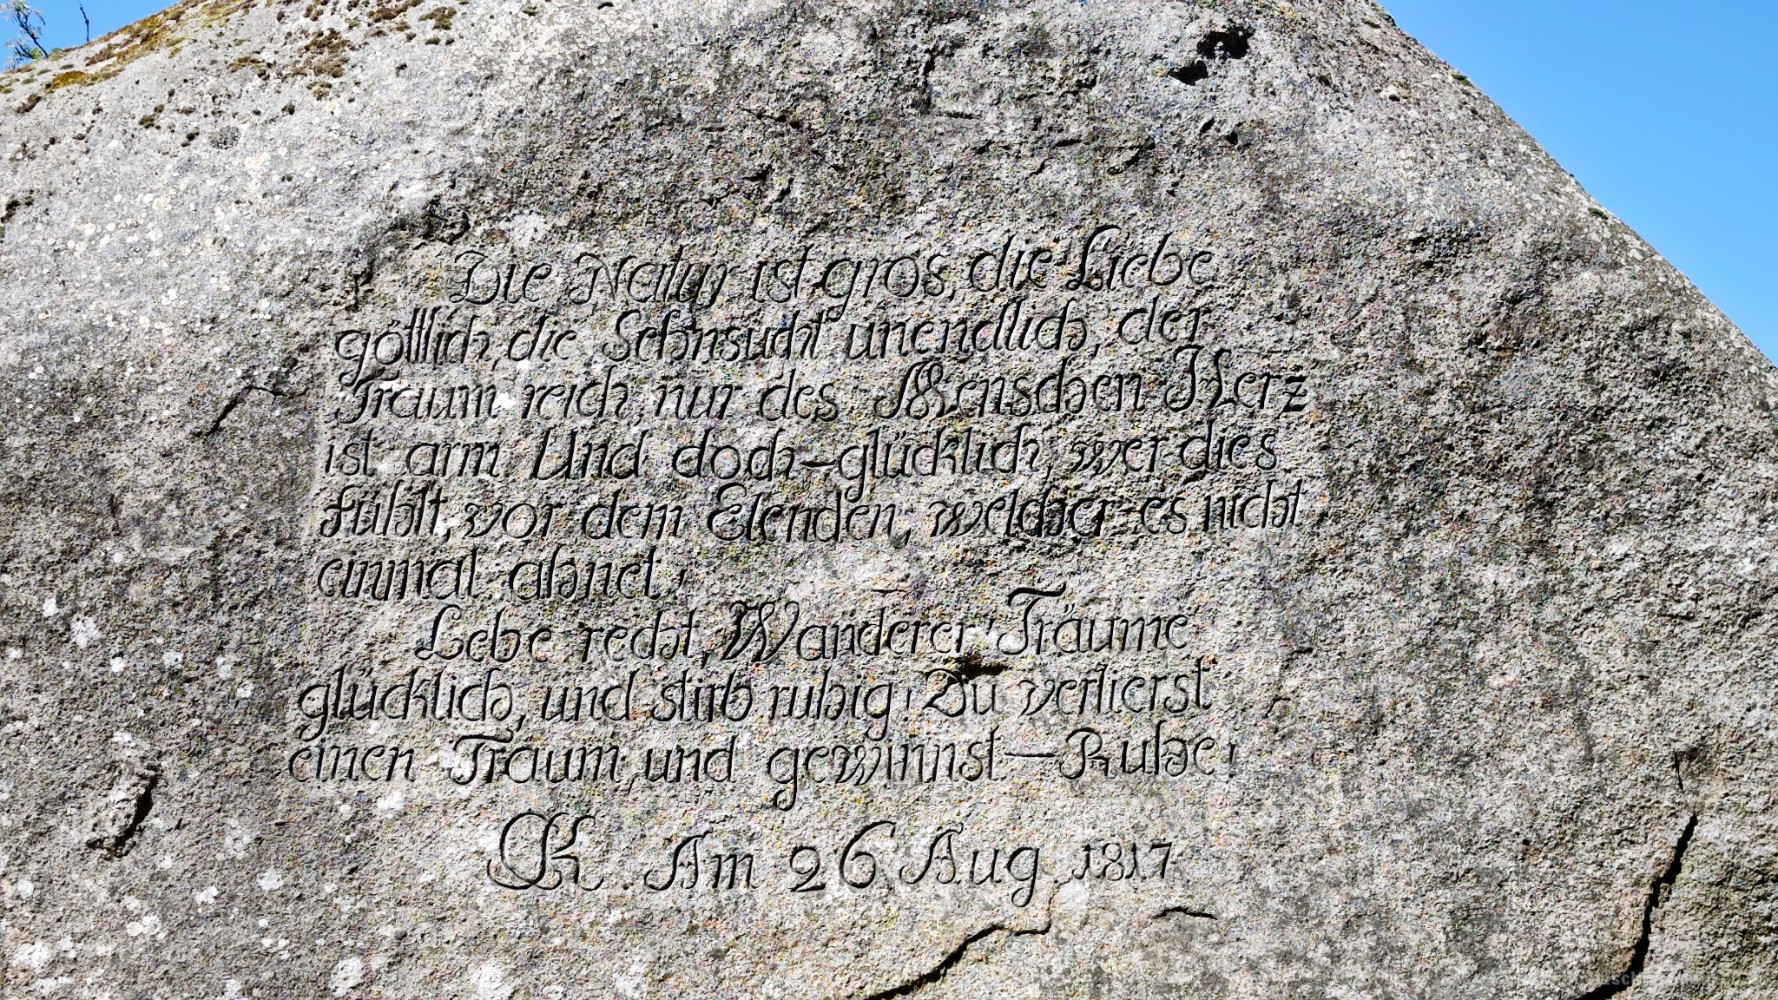 Die Natur ist gros, die Liebe
göttlich, die Sehnsucht unendlich, der
Traum reich, nur des Menschen Herz
ist arm Und doch – glücklich, wer dies
fühlt, vor dem Elenden, welcher es nicht
einmal ahnet!
Lebe recht, Wanderer! Träume
glücklich, und stirb ruhig! Du verlierst
einen Traum, und gewinnst – Ruhe!
K. Am 26 Aug. 1817